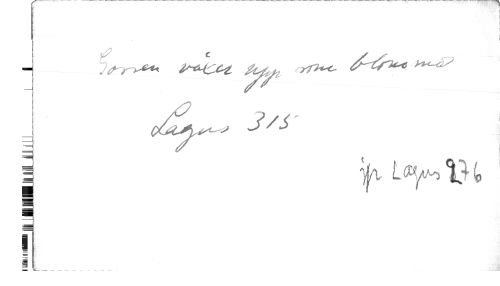 Gossen växer upp som blomma
Lagus 315
jfr Lagus 276